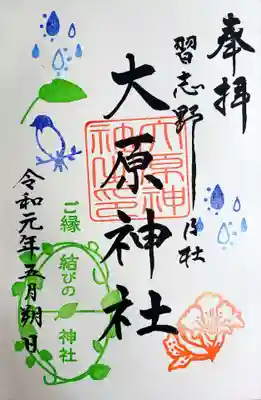 奉拝
習志野
大原神社
令和元年五月朔日
ご縁
結びの
神社